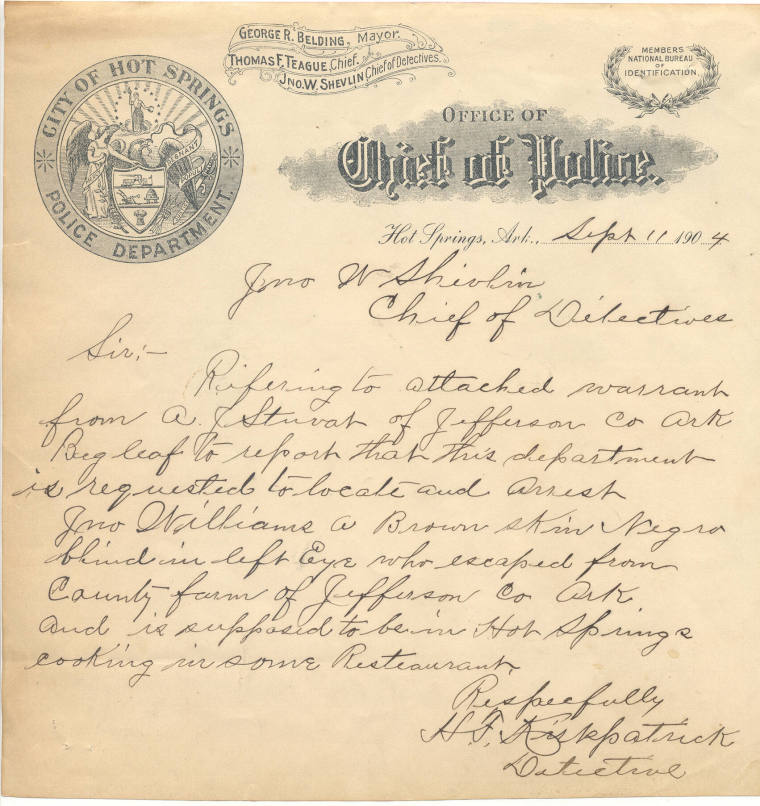 GEORGE R. BELDING, Mayor.
THOMAS F. TEAGUE, Chief.
JNO. W. SHEVLIN, Chief of Detectives.
MEMBERS
NATIONAL BUREAU
OF
IDENTIFICATION.
CITY OF HOT SPRINGS
POLICE DEPARTMENT.
REGNANT
OFFICE OF
Chief of Police.
Hot Springs, Ark., Sept 11 1904
Jno W Shivlin
Chief of Detectives
Sir;-
Rifering to attached warrant
from A. J Stuvat of Jefferson Co Ark
Beg leaf to report that this department
is requested to locate and arrest
Jno Williams a Brown skin Negro
blind in left Eye who escaped from
County farm of Jefferson Co Ark
and is supposed to be in Hot Springs
cooking in some Restaurant
Respecfully
H. F. Kirkpatrick
Detective